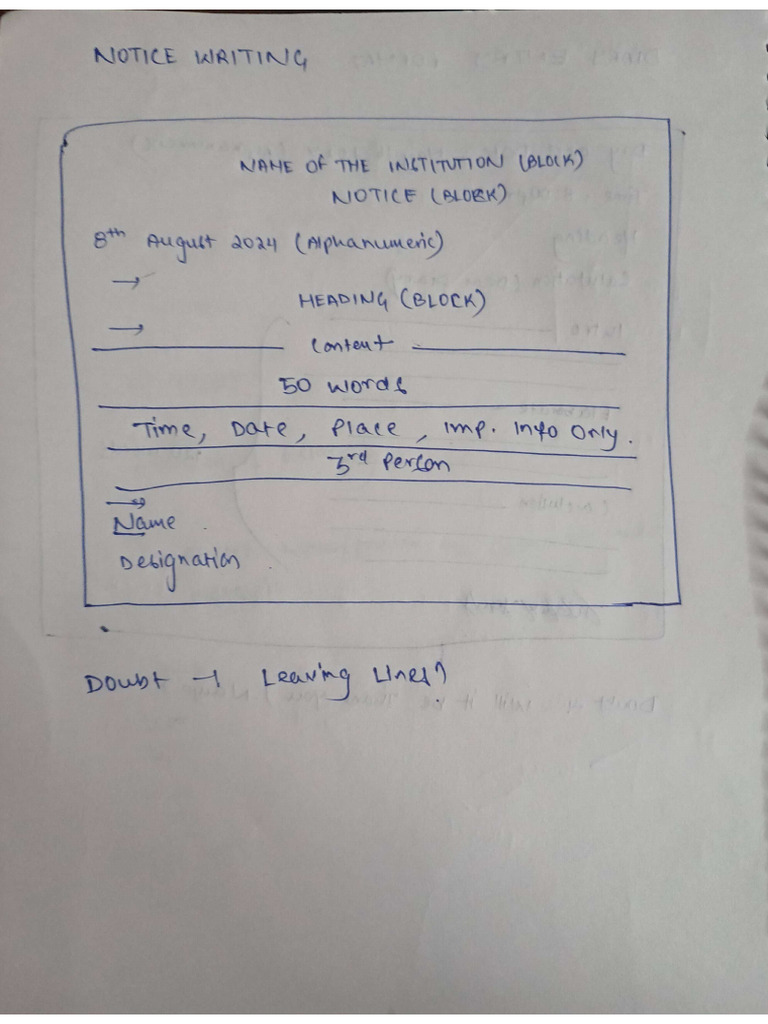 NOTICE WRITING
NAME OF THE INSTITUTION (BLOCK)
NOTICE (BLOCK)
8th August 2024 (Alphanumeric)
→
HEADING (BLOCK)
→
Content
50 words
Time, Date, Place, Imp. Info Only.
3rd Person
→
Name
Designation
Doubt → Leaving Lines?